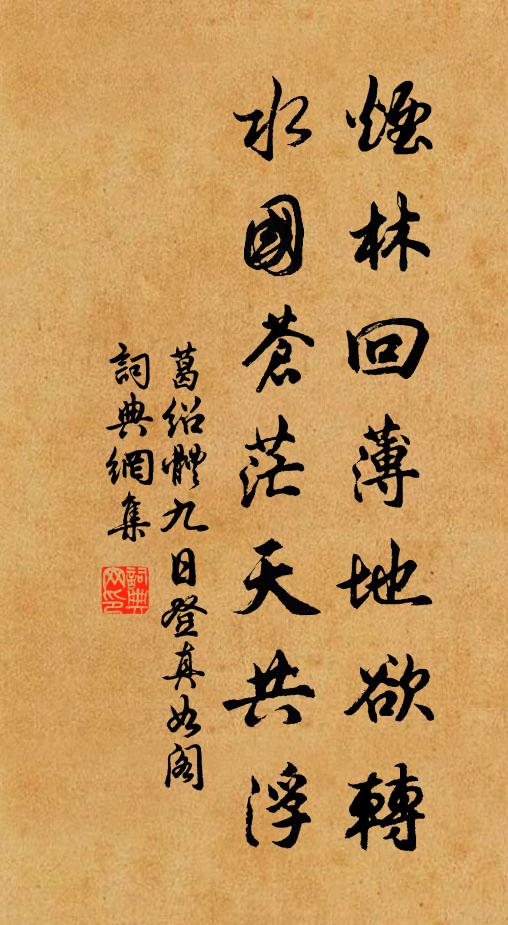 煙林回薄地欲轉
水國蒼茫天共浮
葛紹體九日登真如閣
詞典網集
詞典網印